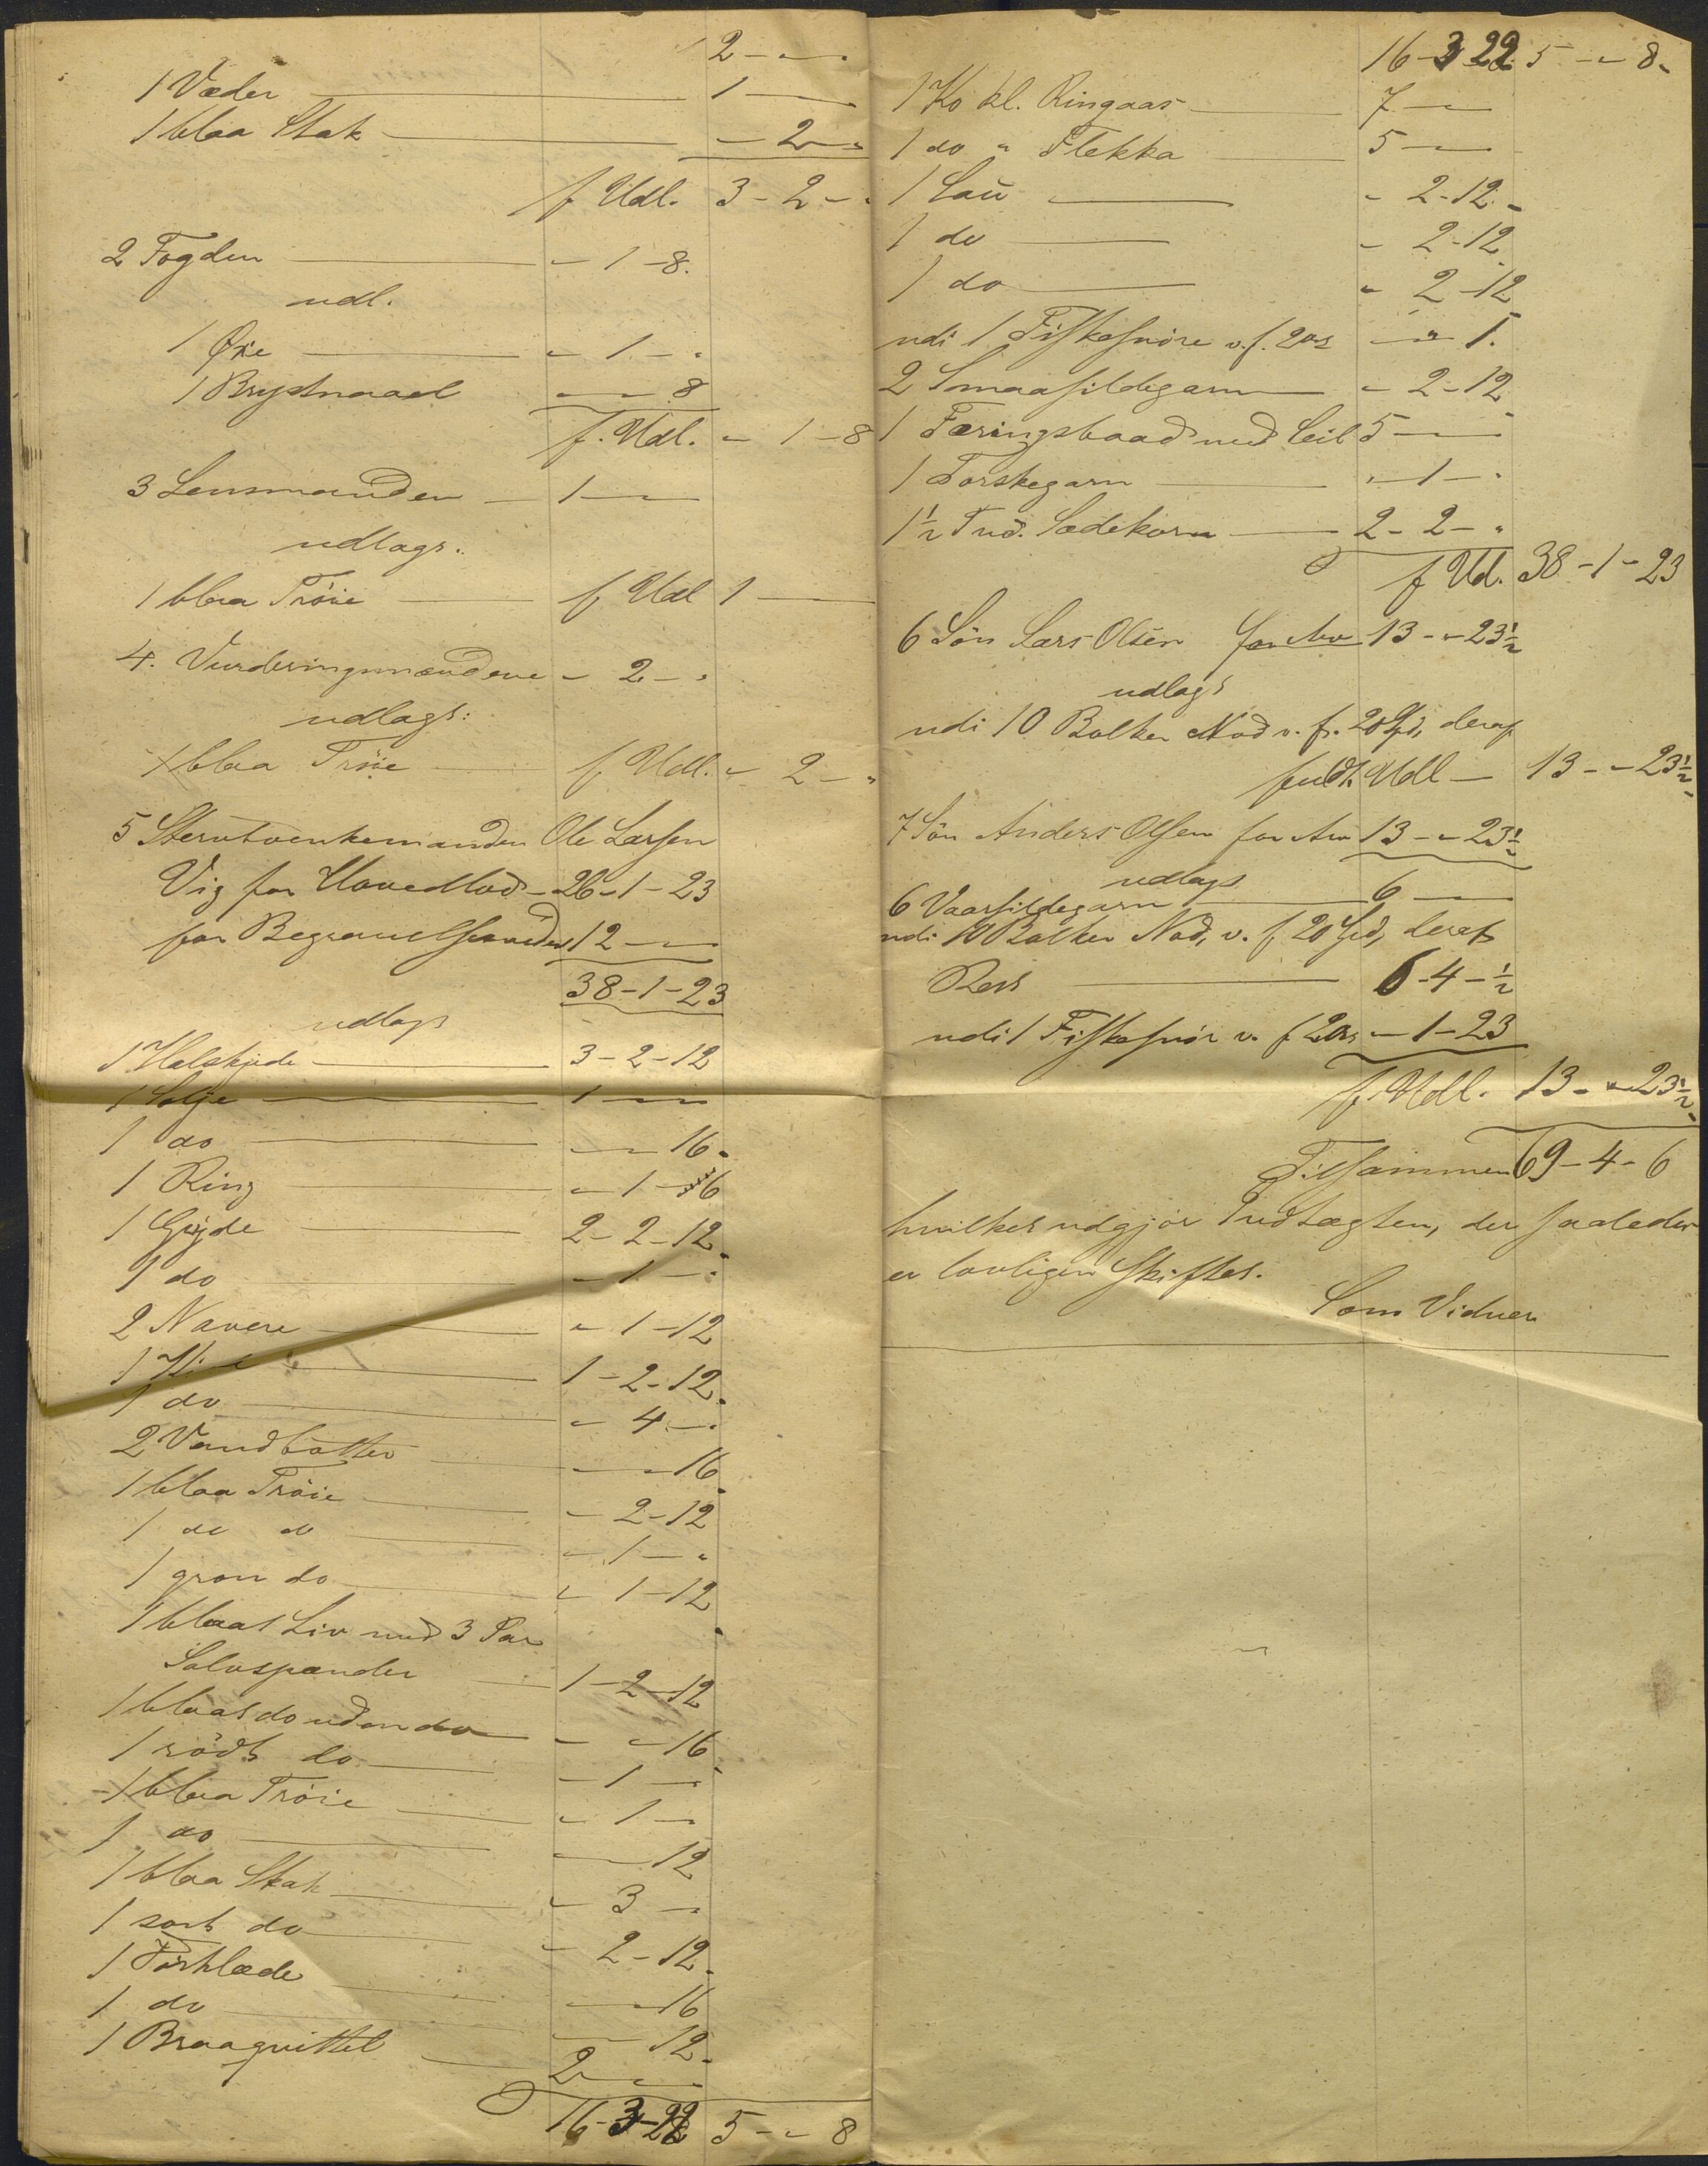 2 - " - "
1 Væder — 1 —
1 blaa Stak — " - 2 - "
f Udl. 3 - 2 - "
2 Fogden — " - 1 - 8.
udl.
1 Øxe — " - 1 - "
1 Brystnaael — " - " - 8
f. Udl. " - 1 - 8
3 Lensmanden — 1 - " - "
udlagt.
1 blaa Trøie — f Udl 1 —
4. Vurderingsmændene " - 2 - "
udlagt:
1 blaa Trøie — f Udl. " - 2 - "
5 Stervboenkemanden Ole Larsen
Vig for Hovedlod - 26 - 1 - 23
for Begravelsen 12 - " - "
38 - 1 - 23
udlagt
1 Halskjede — 3 - 2 - 12
1 Sølje — 1 - " - "
1 do — " - " - 16.
1 Ring — " - 1 - 16
1 Gryde — 2 - 2 - 12
1 do — " - 1 - "
2 Navere — " - 1 - 12
1 — 1 - 2 - 12
1 do — " - 4 - "
2 Vandbøtter — " - " - 16
1 blaa Trøie — " - 2 - 12
1 do do — " - 1 - "
1 grøn do — " - 1 - 12
1 blaat Liv med 3 Par
Sølvspænder — 1 - 2 - 12
1 blaat do uden do " - " - 16
1 rødt do — " - 1 - "
1 blaa Trøie — " - 1 - "
1 do — " - " - 12
1 blaa Stak — " - 3 - "
1 sort do — " - 2 - 12
1 Forklæde — " - " - 16
1 do — " - " - 12
1 Braagvittel — 2 - " - "
16 - 3 - 22 5 - " - 8
16 - 3 - 22 5 - " - 8
1 Ko kl. Ringaas — 7 - " - "
1 do " Flekka — 5 - " - "
1 Sau — " - 2 - 12
1 do — " - 2 - 12
1 do — " - 2 - 12
udi 1 Fiskesnøre v. f. 2 Ort " - " - 1.
2 Smaasildegarn — " - 2 - 12
1 Færingsbaad med Seil 5 - " - "
1 Torskegarn — " - 1 - "
1½ Tnd. Sædekorn — 2 - 2 - "
f Ud. 38 - 1 - 23
6 Søn Lars Olsen for Arv 13 - " - 23½
udlagt
udi 10 Bolker Nod v. f. 20 Spd, deraf
fuldt Udl — 13 - " - 23½
7 Søn Anders Olsen for Arv 13 - " - 23½
udlagt
6 Vaarsildegarn — 6 - " - "
udi 10 Bolker Nod, v. f 20 Spd, deraf
Rest — 6 - 4 - ½
udi 1 Fiskesnør v. f 2 Ort " - 1 - 23
f Udl. 13 - " - 23½
Tilsammen 69 - 4 - 6
hvilket udgjør Indtægten, der saaledes
er lovligen skiftet.
Som Vidner